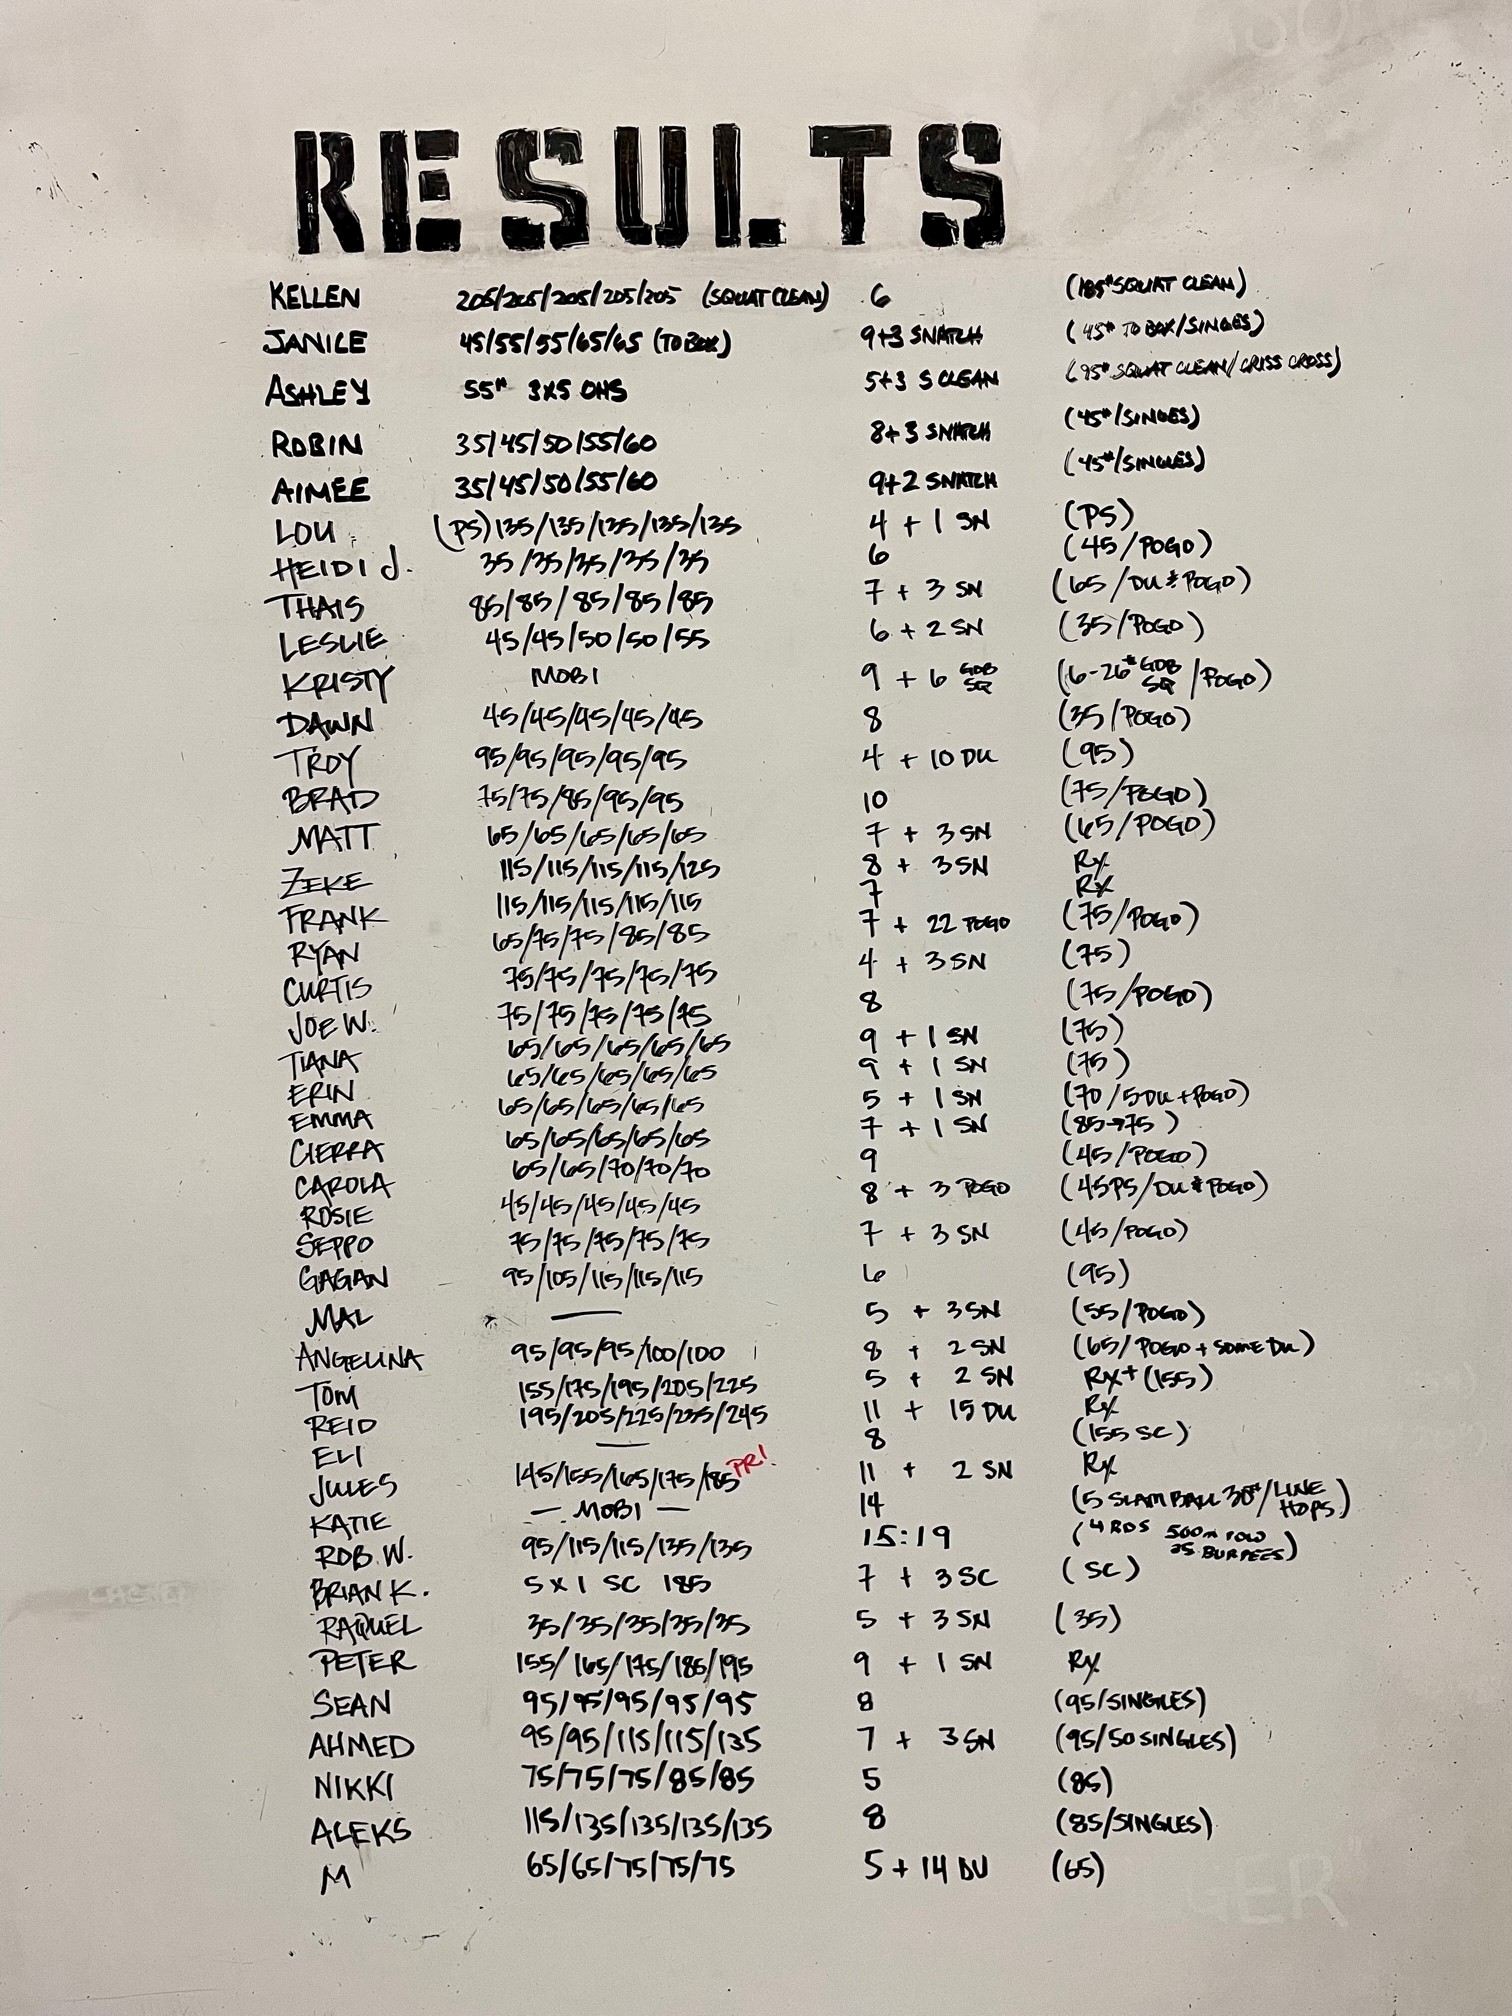 RESULTS
KELLEN 205/205/205/205/205 (SQUAT CLEAN) 6 (185# SQUAT CLEAN)
JANICE 45/55/55/65/65 (TO BOX) 9+3 SNATCH (45# TO BOX/SINGES)
ASHLEY 55# 3X5 OHS 5+3 S CLEAN (95# SQUAT CLEAN/CRISS CROSS)
ROBIN 35/45/50/55/60 8+3 SNATCH (45#/SINGES)
AIMEE 35/45/50/55/60 9+2 SNATCH (45#/SINGLES)
LOU (PS) 135/135/135/135/135 4 + 1 SN (PS)
HEIDI J. 35/35/35/35/35 6 (45/POGO)
THAIS 85/85/85/85/85 7 + 3 SN (65/DU & POGO)
LESLIE 45/45/50/50/55 6 + 2 SN (35/POGO)
KRISTY MOBI 9 + 6 GOB SQ (6-26# GOB SQ /POGO)
DAWN 45/45/45/45/45 8 (35/POGO)
TROY 95/95/95/95/95 4 + 10 DU (95)
BRAD 75/75/85/95/95 10 (75/POGO)
MATT 65/65/65/65/65 7 + 3 SN (65/POGO)
ZEKE 115/115/115/115/125 8 + 3 SN Rx
FRANK 115/115/115/115/115 7 Rx
RYAN 65/75/75/85/85 7 + 22 POGO (75/POGO)
CURTIS 75/75/75/75/75 4 + 3 SN (75)
JOE W. 75/75/75/75/75 8 (75/POGO)
TIANA 65/65/65/65/65 9 + 1 SN (75)
ERIN 65/65/65/65/65 9 + 1 SN (75)
EMMA 65/65/65/65/65 5 + 1 SN (70/5DU + POGO)
CIERRA 65/65/65/65/65 7 + 1 SN (85→75)
CAROLA 65/65/70/70/70 9 (45/POGO)
ROSIE 45/45/45/45/45 8 + 3 POGO (45PS/DU & POGO)
SEPPO 75/75/75/75/75 7 + 3 SN (45/POGO)
GAGAN 95/105/115/115/115 6 (95)
MAL — 5 + 3 SN (55/POGO)
ANGELINA 95/95/95/100/100 8 + 2 SN (65/POGO + SOME DU)
TOM 155/175/195/205/225 5 + 2 SN Rx+ (155)
REID 195/205/225/235/245 11 + 15 DU Rx
ELI — 8 (155 SC)
JULES 145/155/165/175/185 PR! 11 + 2 SN Rx
KATIE — MOBI — 14 (5 SLAM BALL 30#/LINE HOPS)
ROB W. 95/115/115/135/135 15:19 (4 RDS 500m ROW 25 BURPEES)
BRIAN K. 5 x 1 SC 185 7 + 3 SC (SC)
RAQUEL 35/35/35/35/35 5 + 3 SN (35)
PETER 155/165/175/185/195 9 + 1 SN Rx
SEAN 95/95/95/95/95 8 (95/SINGLES)
AHMED 95/95/115/115/135 7 + 3 SN (95/50 SINGLES)
NIKKI 75/75/75/85/85 5 (85)
ALEKS 115/135/135/135/135 8 (85/SINGLES)
M 65/65/75/75/75 5 + 14 DU (65)